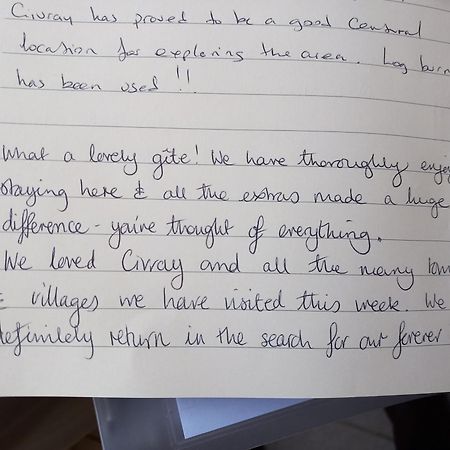 Civray has proved to be a good central
location for exploring the area. Log burn
has been used !!
What a lovely gîte! We have thoroughly enjoy
staying here & all the extras made a huge
difference - you've thought of everything.
We loved Civray and all the many tow
& villages we have visited this week. We
definitely return in the search for our forever